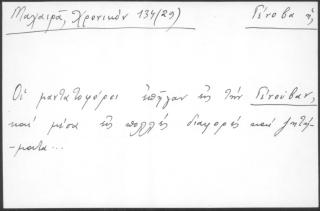 Μαχαιρᾶ, Χρονικόν 134(29) Γένοβα ἡ
Οἱ μαντατοφόροι ἐπῆγαν εἰς τὴν Γενούβαν,
καὶ μέσα εἰς πολλὲς διαφορὲς καὶ ζητή-
ματα...